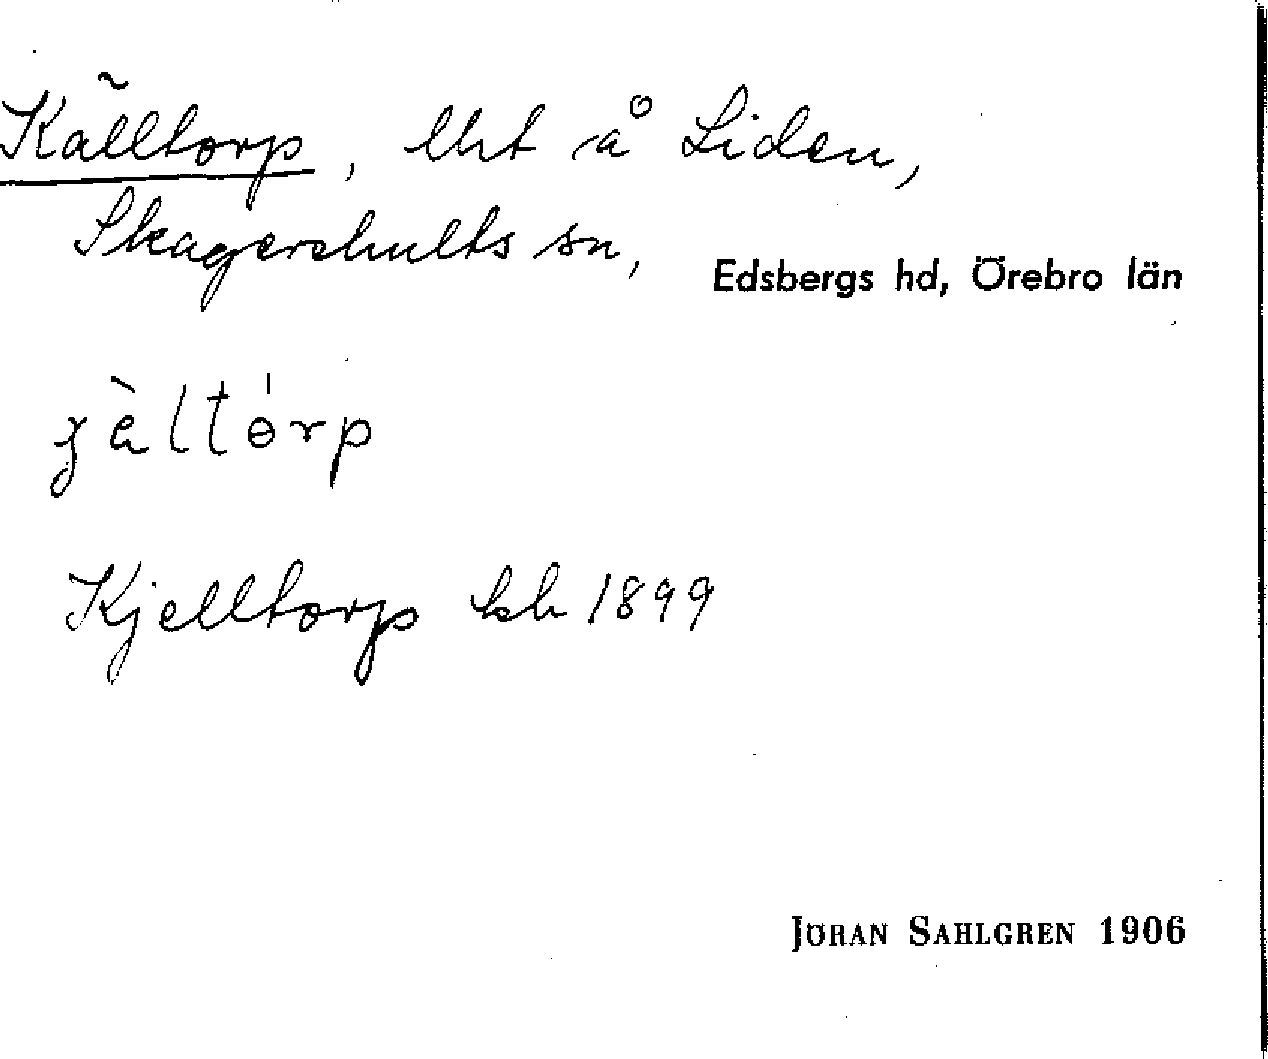 Källtorp, lht å Liden,
Skagershults sn,
Edsbergs hd, Örebro län
Kjelltorp kb 1899
JÖRAN SAHLGREN 1906